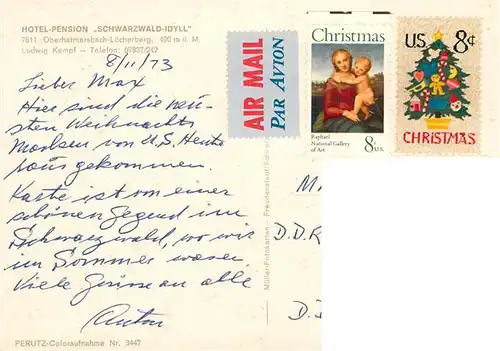 HOTEL-PENSION „SCHWARZWALD-IDYLL"
7611 Oberharmersbach-Löcherberg, 400 m ü. M.
Ludwig Kempf – Telefon: 07837/242
8/11/73
Lieber Max
Hier sind die neu-
sten Weihnachts
Marken von U.S. Heute
rausgekommen.
Karte ist von einer
schönen Gegend im
Schwarzwald, wo wir
im Sommer waren.
Viele Grüsse an alle
Anton
PERUTZ-Coloraufnahme Nr. 3447
Müller-Fotokarten - Freudenstadt/Schwarzw.
AIR MAIL
PAR AVION
Christmas
Raphael
National Gallery
of Art
8c U.S.
US 8¢
CHRISTMAS
M
D.D.R
D.